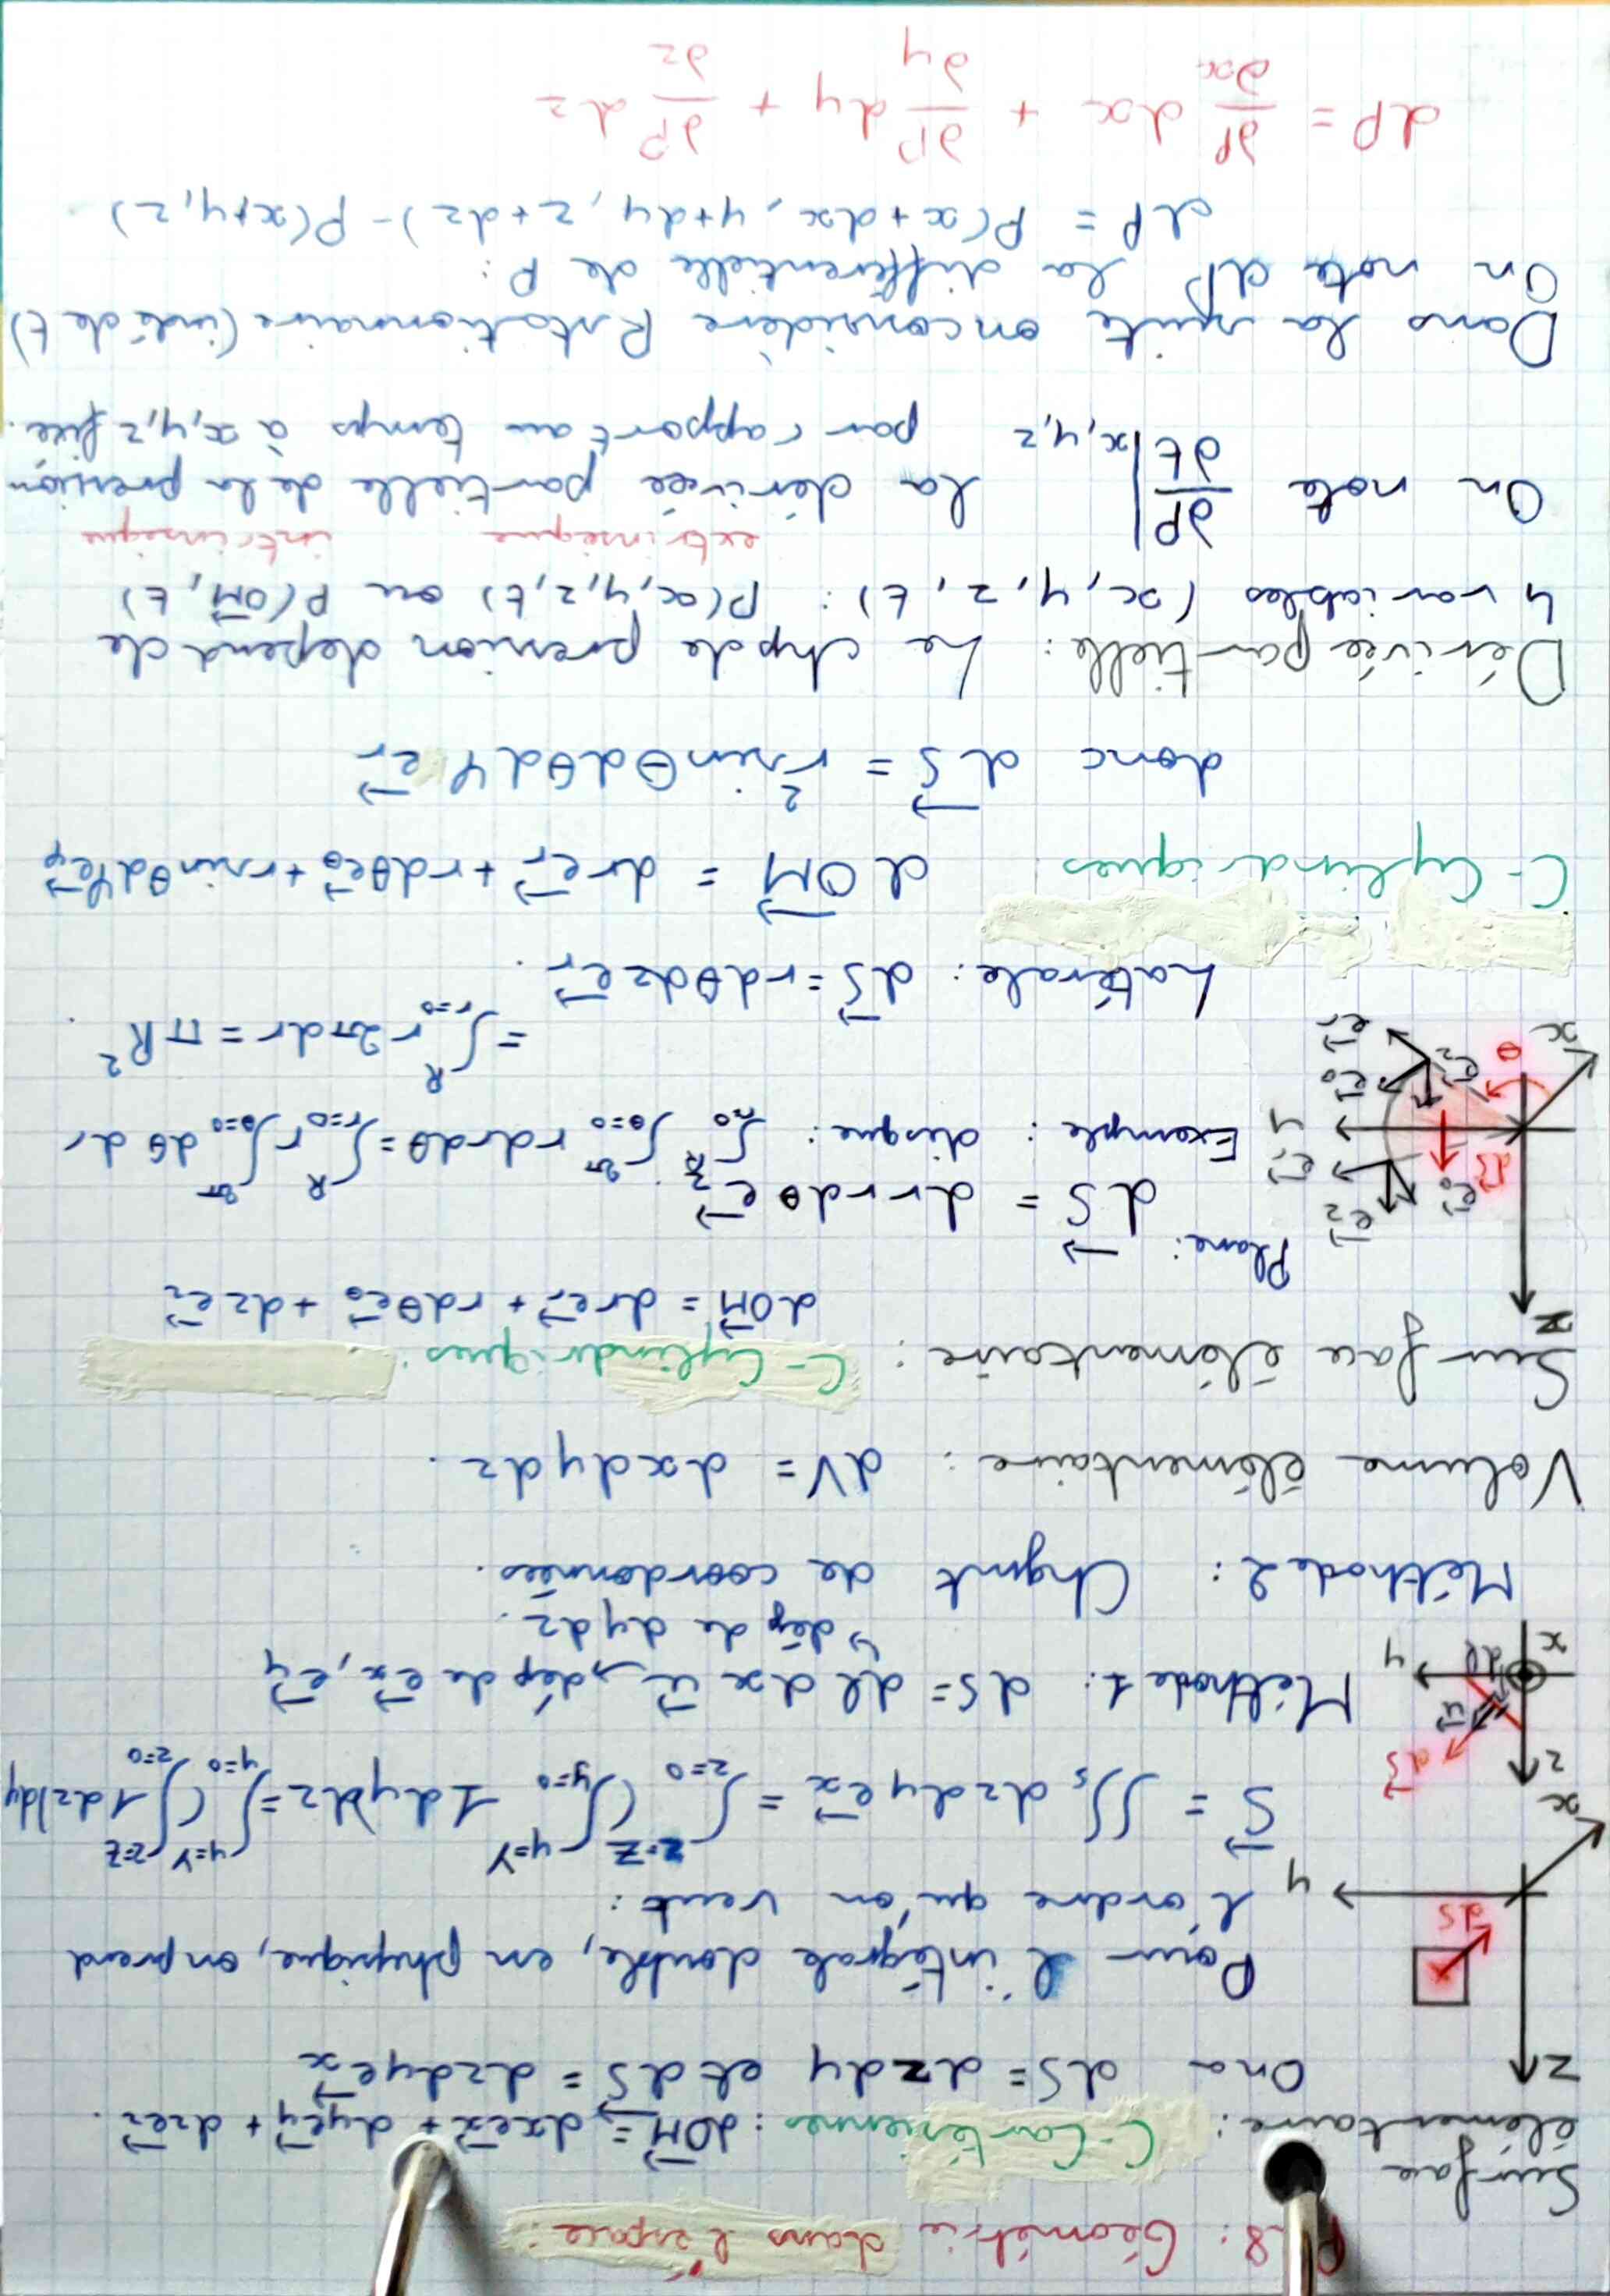 P18: Géométrie dans l'espace:
Surface
élémentaire: C-Cartésiennes: dOM⃗ = dxe⃗x + dye⃗y + dze⃗z.
On a dS = dzdy et dS⃗ = dzdye⃗x
Pour l'intégrale double, en physique, on prend
l'ordre qu'on veut:
S⃗ = ∫∫s dzdye⃗x = ∫_{z=0}^{z=Z} (∫_{y=0}^{y=Y} 1dy)dz = ∫_{y=0}^{y=Y} (∫_{z=0}^{z=Z} 1dz)dy
z
y
x
dS⃗
Méthode 1: dS = dl dx u⃗ → dép de e⃗x, e⃗y
↳ dép de dydz.
z
y
x
dS⃗
u⃗
dl
Méthode 2: Chgmt de coordonnées.
Volume élémentaire: dV = dxdydz.
Surface élémentaire: C-Cylindriques:
dOM⃗ = dre⃗r + rdθe⃗θ + dze⃗z
Plane: dS⃗ = drrdθe⃗z
Exemple: disque: ∫_{r=0}^{R} ∫_{θ=0}^{2π} rdrdθ = ∫_{r=0}^{R} r∫_{θ=0}^{2π} dθ dr
= ∫_{r=0}^{R} r2πdr = πR²
Latérale: dS⃗ = rdθdze⃗r.
z
y
x
e⃗z
e⃗θ
e⃗r
θ
e⃗z
e⃗θ
e⃗r
C-Cylindriques dOM⃗ = dre⃗r + rdθe⃗θ + rsinθdφe⃗φ
donc dS⃗ = r²sinθdθdφe⃗r
Dérivée partielle: Le chp de pression dépend de
4 variables (x, y, z, t): P(x,y,z,t) ou P(OM⃗, t)
extrinsèque intrinsèque
On note ∂P/∂t|x,y,z la dérivée partielle de la pression
par rapport au temps à x,y,z fixé.
Dans la suite on considère P stationnaire (indé de t)
On note dP la différentielle de P:
dP = P(x+dx, y+dy, z+dz) - P(x+y,z)
dP = ∂P/∂x dx + ∂P/∂y dy + ∂P/∂z dz